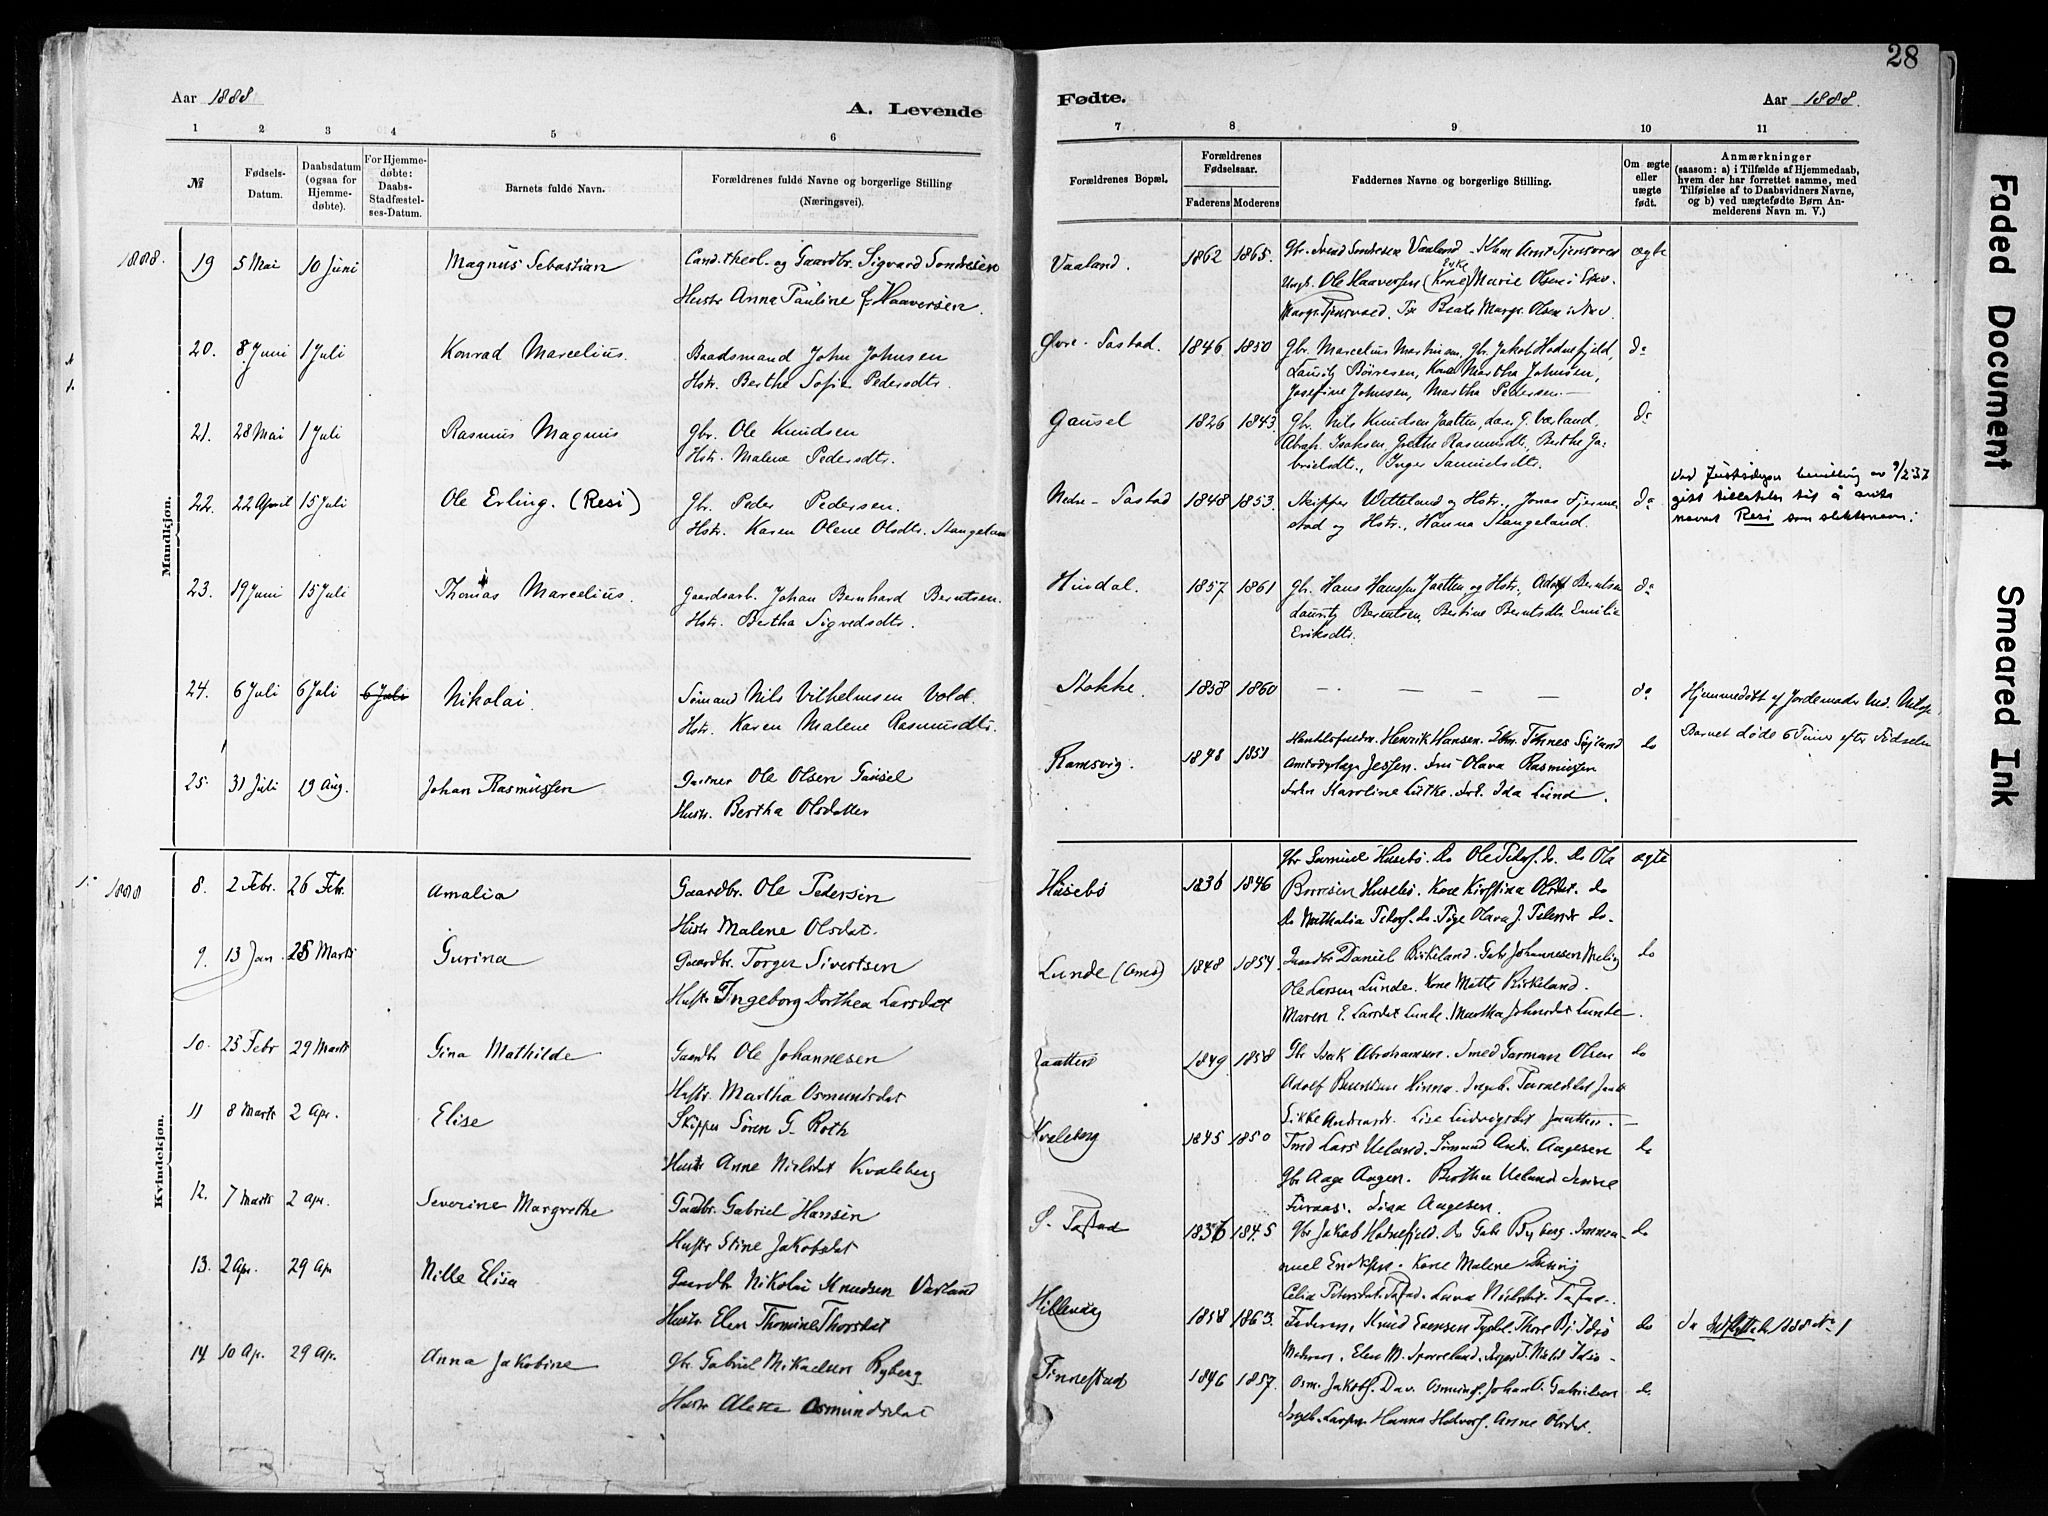 28
Aar 1888
A. Levende
Fødte.
Aar 1888.
1 2 3 4 5 6 7 8 9 10 11
№
Fødsels-
Datum.
Daabsdatum
(ogsaa for
Hjemme-
døbte).
For Hjemme-
døbte:
Daabs-
Stadfæstel-
ses-Datum.
Barnets fulde Navn.
Forældrenes fulde Navne og borgerlige Stilling
(Næringsvei).
Forældrenes Bopæl.
Forældrenes
Fødselsaar.
Faderens Moderens
Faddernes Navne og borgerlige Stilling.
Om ægte
eller
uægte
født.
Anmærkninger
(saasom: a) i Tilfælde af Hjemmedaab,
hvem der har forrettet samme, med
Tilføielse af to Daabsvidners Navne,
og b) ved uægtefødte Børn An-
melderens Navn m. V.)
Mandkjøn.
1888. 19 5 Mai 10 Juni Magnus Sebastian Cand. theol. og Gaardbr. Sigvard Sondresen
Hustr Anna Pauline f. Haaversen.
Vaaland. 1862 1865. Gbr. Svend Sondresen Vaaland. ægte
Ole Haaversen (Kone) Marie Olsen
20. 8 Juni 1 Juli Konrad Marcelius. Baadsmand John Johnsen
Hstr. Berthe Sofie Pedersdtr.
Øvre-Tastad. 1846 1850 Gbr. Marcelius Martinsen, Gbr. Jakob Hodnefjeld, do
Lauritz Børresen, Kone Martha Johnsen,
Josefine Johnsen, Martha Pedersen.
21. 28 Mai 1 Juli Rasmus Magnus Gbr. Ole Knudsen
Hstr. Malene Pedersdtr.
Gausel 1826 1843 Gbr. Nils Knudsen Jaatten, Lars G. Væland, do
Abrah. Isaksen, Grethe Rasmusdtr, Berthe Ga-
brielsdtr., Inger Samuelsdtr.
22. 22 April 15 Juli Ole Erling. (Resi) Gbr. Peder Pedersen.
Hstr. Karen Olene Olsdtr. Stangeland
Nedre-Tastad 1848 1853. Skipper Wetteland og Hstr., Jonas Tjerne- do
stad og Hstr., Hanna Stangeland.
Ved Justisdeps bevilling av 9/2 37
gitt tillatelse til å anta
navnet Resi som slektsnavn.
23. 19 Juni 15 Juli Thomas Marcelius. Gaardsarb. Johan Bernhard Berntsen.
Hstr. Bertha Sigvedsdtr.
Hindal. 1857 1861 Gbr. Hans Hansen Jaatten og Hstr., Adolf Berntsen do
Lauritz Berntsen, Bertine Berntsdtr. Emilie
Eriksdtr.
24. 6 Juli 6 Juli 6 Juli Nikolai Sømand Nils Vilhelmsen Vold.
Hstr. Karen Malene Rasmusdtr.
Stokke. 1858 1860 — — — — — do
Hjemmedøbt af Jordemoder
Barnet døde 6 Timer efter Fødselen
25. 31 Juli 19 Aug. Johan Rasmussen Gartner Ole Olsen Gausel
Hustr. Bertha Olsdatter
Ramsvig. 1848 1851 Henrik Hansen. do
Jessen. Fru Olava Rasmussen
Karoline Lütke. Frk. Ida Lund.
Kvindekjøn.
1888 8. 2 Febr. 26 Febr. Amalia Gaardbr. Ole Pedersen
Hustr Malene Olsdat.
Husebø 1836 1846 Gbr Samuel Husebø. Do Ole Peders. do. Do Ola ægte
Borresen Husebø. Kone Kirstina Olsdat. do
9. 13 Jan 25 Marts Gurina Gaardbr. Torger Sivertsen
Hustr Ingeborg Dorthea Larsdat
Lunde 1848 1854. Gaardbr Daniel Birkeland. Gabr Johannesen do
Ole Larsen Lunde. Kone Mette Birkeland.
Maren E. Larsdat Lunde. Martha Johnsdat Lunde.
10. 25 Febr 29 Marts Gina Mathilde Gaardbr Ole Johannesen
Hustr. Martha Osmundsdat
Jaatten 1849. 1858 Gbr Isak Abrahamsen. Smed Garman Olsen do
Adolf Berntsen Hinna.
Lise Ludvigsdat Jaatten.
11 8 Marts 2 Apr. Elise Skipper Sören G. Roth
Hustr Anne Nielsdat Kvaleberg
Kvaleberg 1845 1850 Lars Ueland. Sömand Andr. Aagesen do
Gbr Aage Aagen. Berthe Ueland
Furaas. Lina Aagesen.
12. 7 Marts 2 Apr. Severine Margrethe Gaardbr. Gabriel Hansen
Hustr Stine Jakobsdat
S. Tastad 1836 1845 Gbr Jakob Hodnefjeld. Do Gabr Byberg. Imman- do
uel Kone Malene
Celia Petersdat. Tastad. Lava Nielsdat. Tastad.
13. 2 Apr. 29 Ap Nille Elisa Gaardbr Nikolai Knudsen Varland
Hustr. Elen Thomine Thorsdat
Hillevaag 1858 1863. Faderen, Knud do
Moderen, Elen M.
do 1888 No 1
14 10 Ap. 29 Ap. Anna Jakobine Gbr. Gabriel Mikaelsen Byberg
Hustr Alette Osmundsdat
Finnestad 1846 1857. Osm. Jakobs. Dav. Osmunds. Johan Gabrielsen do
Ingeb. Larsen. Hanna Anne Olsdat.
Faded Document
Smeared Ink